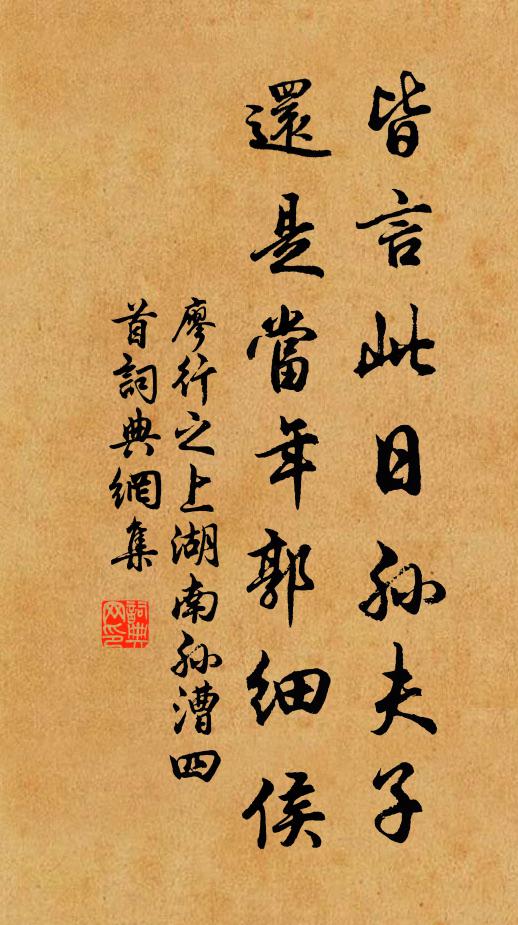 皆言此日孙夫子
還是當年郭细侯
廖行之上湖南孙漕四
首詞典網集
詞典网印